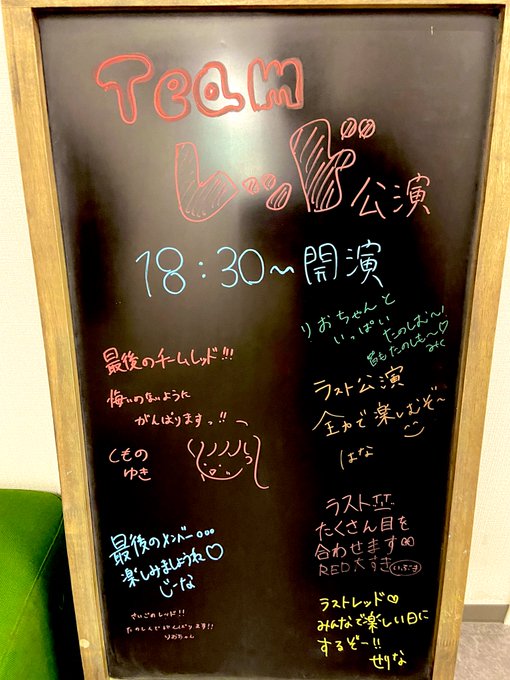 Team
レッド公演
18:30〜開演
りおちゃんと
いっぱい
たのしむ〜!
皆もたのしも〜♡
みく
最後のチームレッド!!!
悔いのないように
がんばりますっ!!
くもの
ゆき
ラスト公演
全力で楽しむぞ〜
はな
最後のメンバー…
楽しみましょうね♡
じーな
ラスト
たくさん目を
合わせます
RED大すき
いぶき
さいごのレッド!!
たのしんでがんばります!!
りおちゃん
ラストレッド♡
みんなで楽しい日に
するぞー!!
せりな